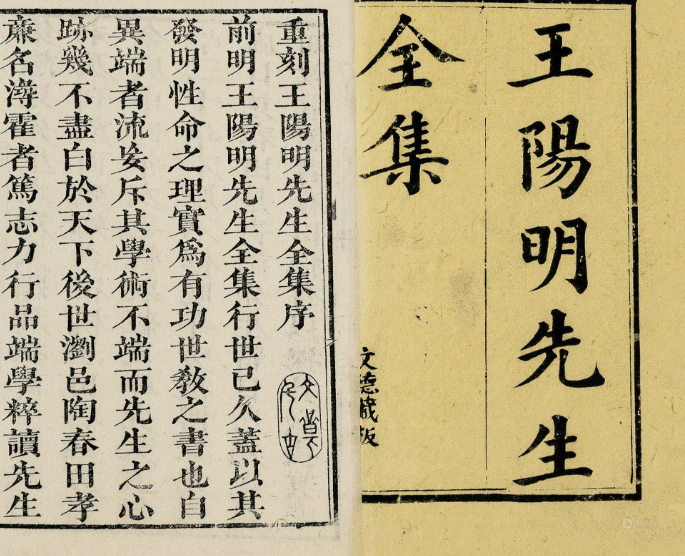 王陽明先生
全集
文德藏板
重刻王陽明先生全集序
前明王陽明先生全集行世已久蓋以其
發明性命之理實爲有功世教之書也自
異端者流妄斥其學術不端而先生之心
跡幾不盡白於天下後世瀏邑陶春田孝
亷名潯霍者篤志力行品端學粹讀先生